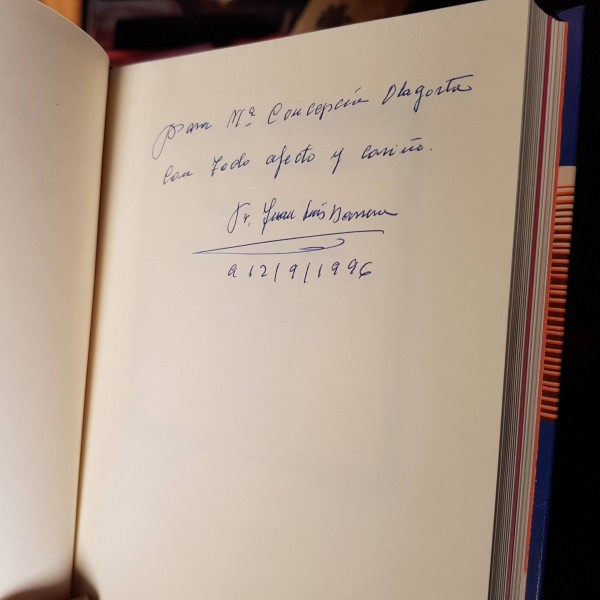 para Mª Concepción Olagorta
con todo afecto y cariño.
Fr. Juan Luis Barrera
a 12/9/1996